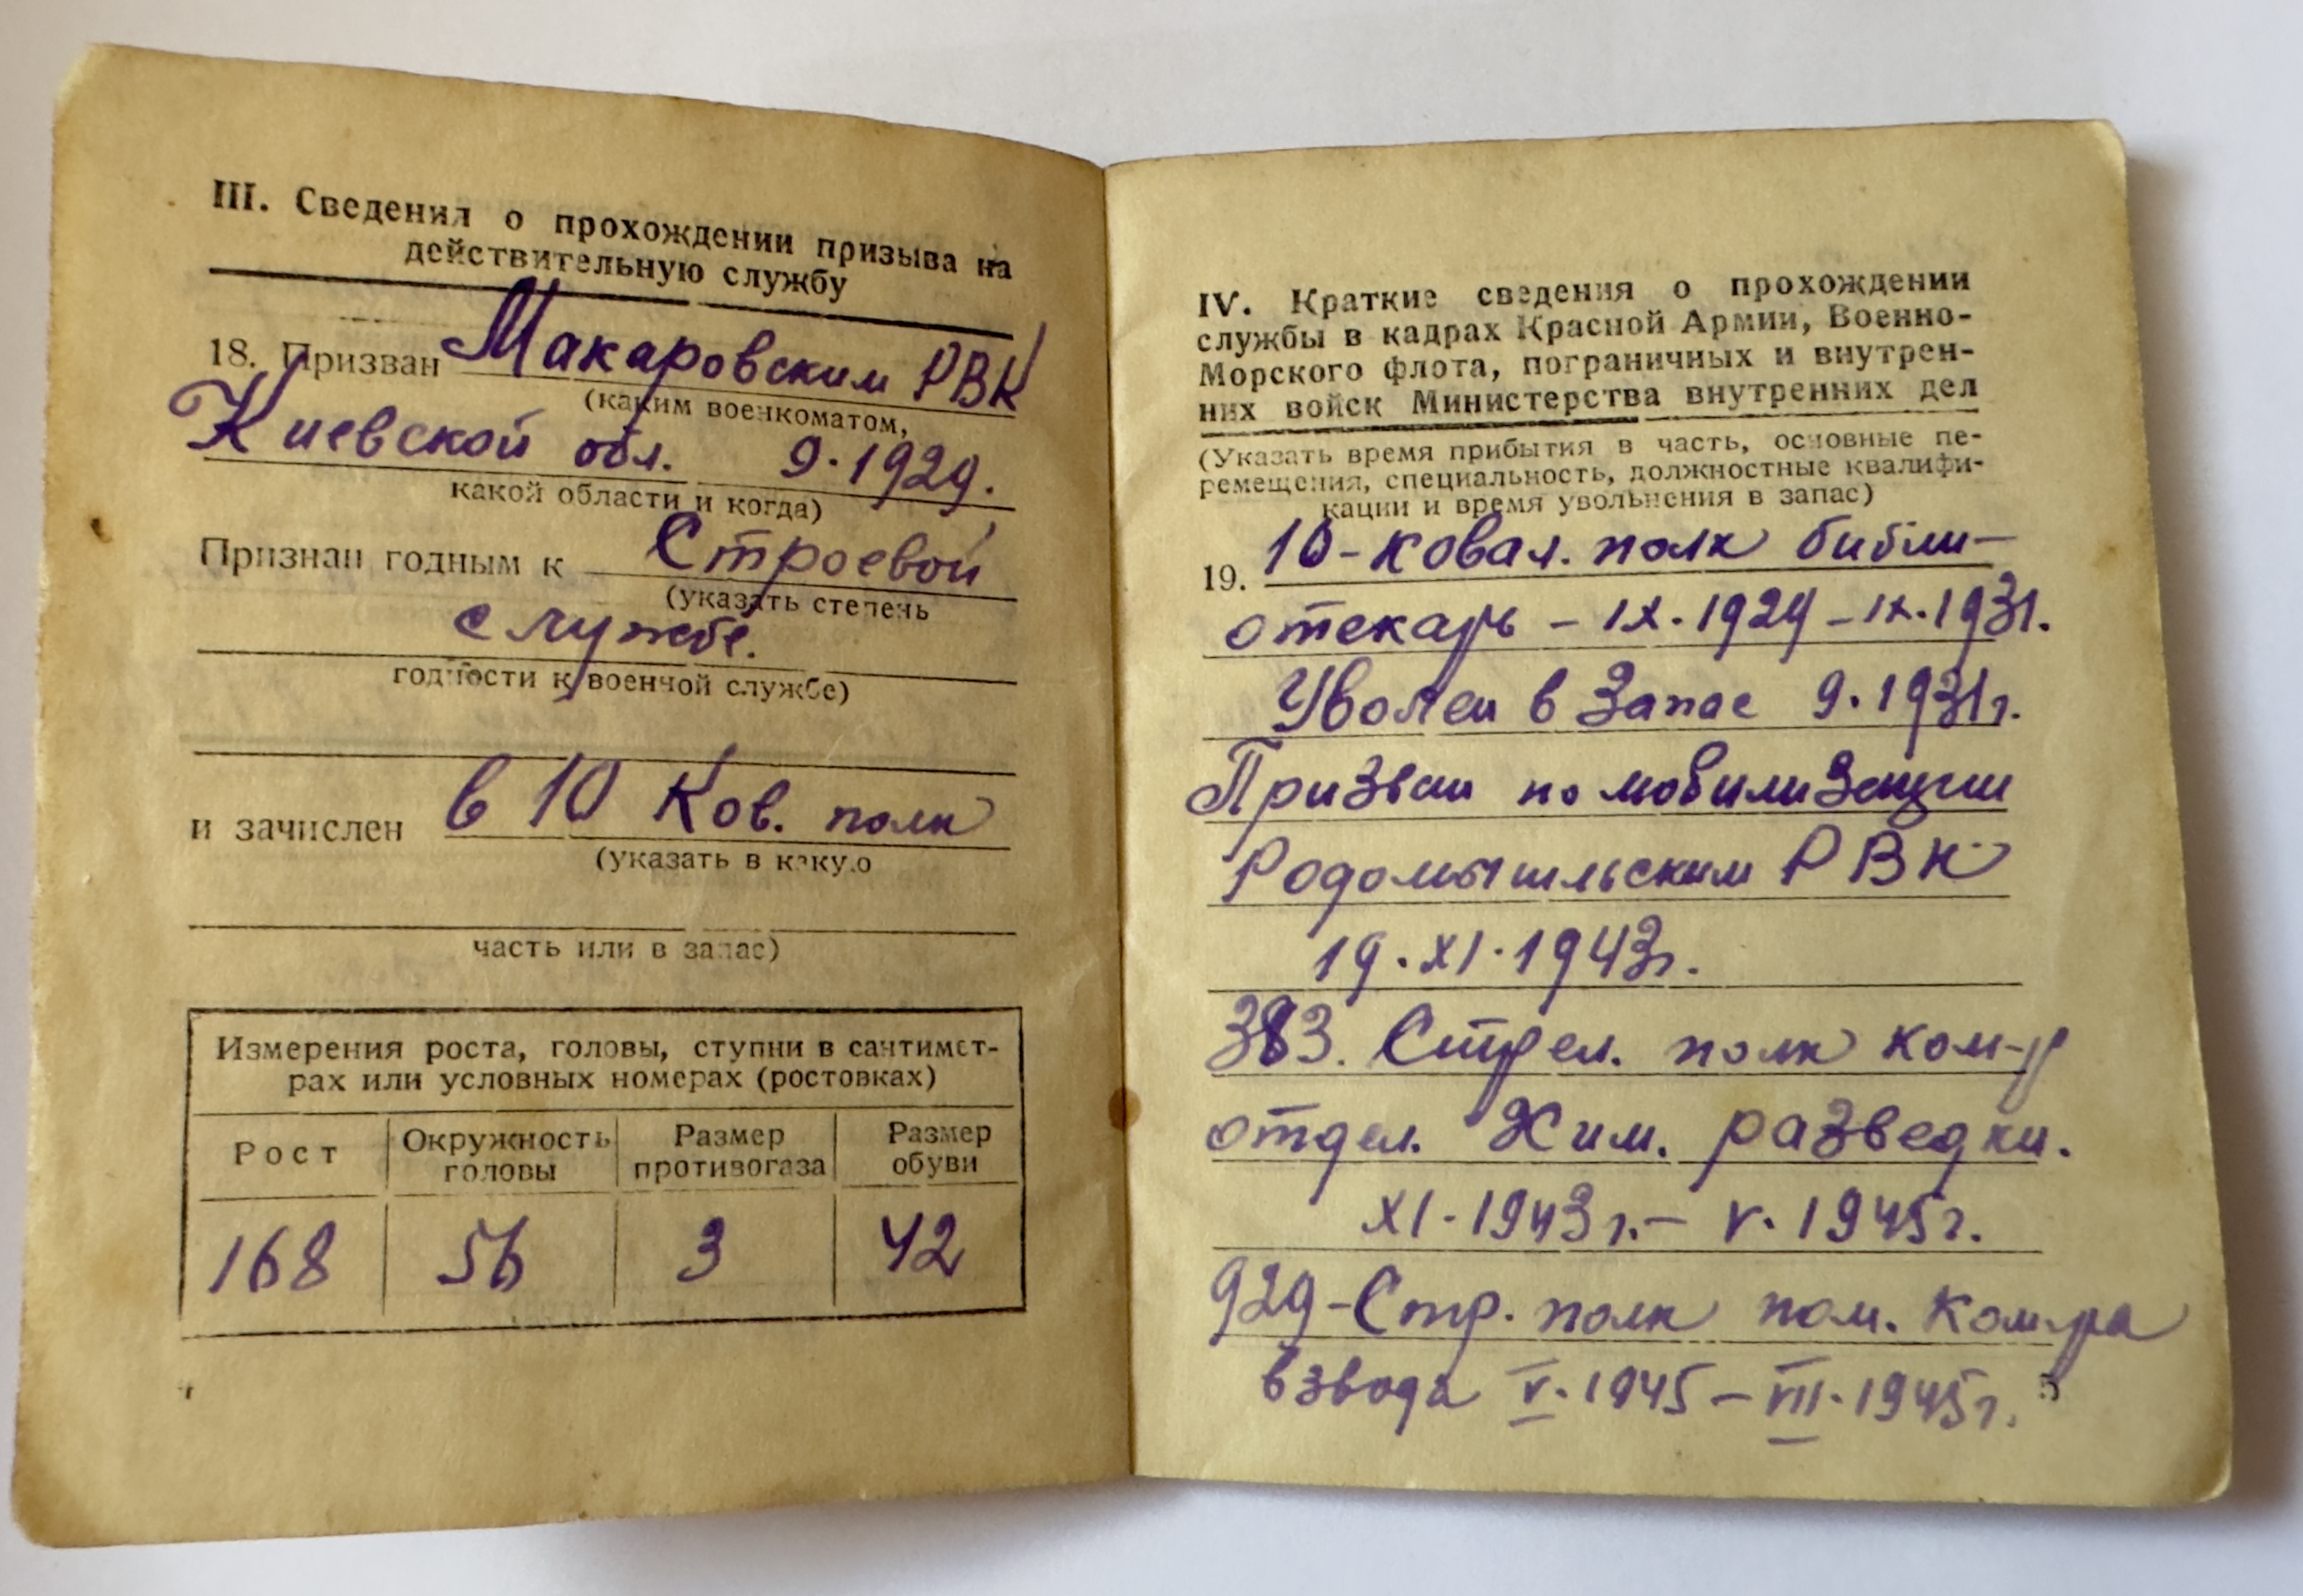 III. Сведения о прохождении призыва на
действительную службу
18. Призван Макаровским РВК
(каким военкоматом,
Киевской обл. 9.1929.
какой области и когда)
Признан годным к Строевой
(указать степень
службе.
годности к военной службе)
и зачислен в 10 Ков. полк
(указать в какую
часть или в запас)
Измерения роста, головы, ступни в сантимет-
рах или условных номерах (ростовках)
Рост Окружность головы Размер противогаза Размер обуви
168 56 3 42
4
IV. Краткие сведения о прохождении
службы в кадрах Красной Армии, Военно-
Морского флота, пограничных и внутрен-
них войск Министерства внутренних дел
(Указать время прибытия в часть, основные пе-
ремещения, специальность, должностные квалифи-
кации и время увольнения в запас)
19. 10-ковал. полк библи-
отекарь - IX.1929 - IX.1931.
Уволен в Запас 9.1931г.
Призван по мобилизации
Родомышльским РВК
19.XI.1943г.
383. Стрел. полк ком-р
отдел. Хим. разведки.
XI-1943г. - V.1945г.
929-Стр. полк пом. Ком-ра
взвода V.1945 - VIII.1945г.
5